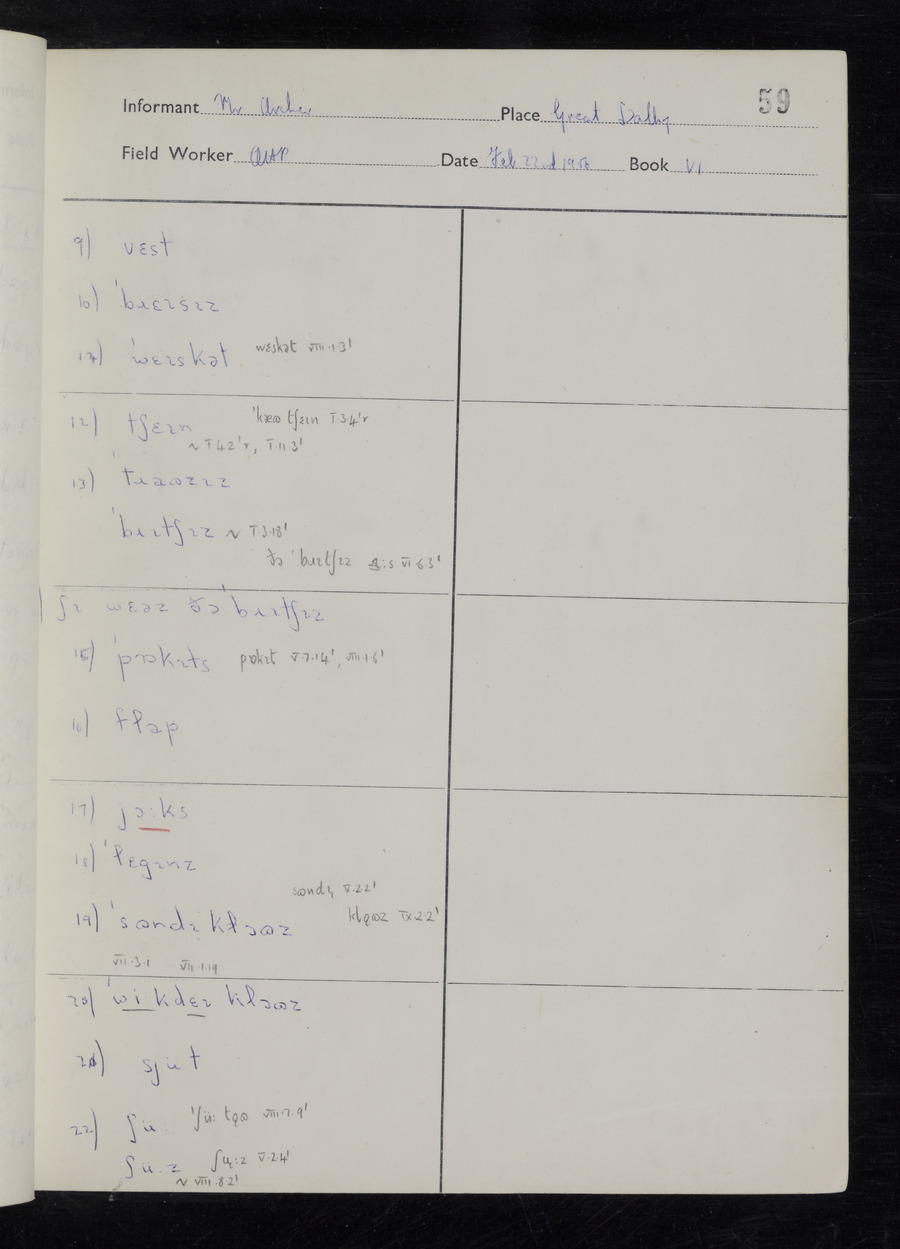 59
Informant Mr Archer Place Great Dalby
Field Worker Date Feb 22nd 1956 Book VI
9) vɛst
10) ˈbɹɛɪsɪz
11) ˈwɛɪskət wɛskət VIII.1.3ˈ
12) tʃɛɪn ˈkæɷ tʃɛɪn I.3.4ˈr
~ I.4.2ˈr, I.11.3ˈ
13) ˈtɹaɷzɪz
ˈbɹɪtʃɪz ~ I.3.18ˈ
ðə ˈbɹɪtʃɪz VI.6.3ˈ
ʃɪ wɛəz ðə ˈbɹɪtʃɪz
15) ˈpɒkɪts pɒkɪt V.7.14ˈ, VIII.1.6ˈ
16) flap
17) jɔːks
18) ˈlɛgɪnz
sɷndɪ V.2.2ˈ
19) ˈsɷndɪ klɔɷz klǫɷz IX.2.2ˈ
VII.3.1 VII.1.19
20) ˈwiˑkdɛɪ klɔɷz
21) sjüt
22) ʃüˑ ˈʃüː tǫɷ VIII.7.9ˈ
ʃüˑz V.2.4ˈ
~ VIII.8.2ˈ